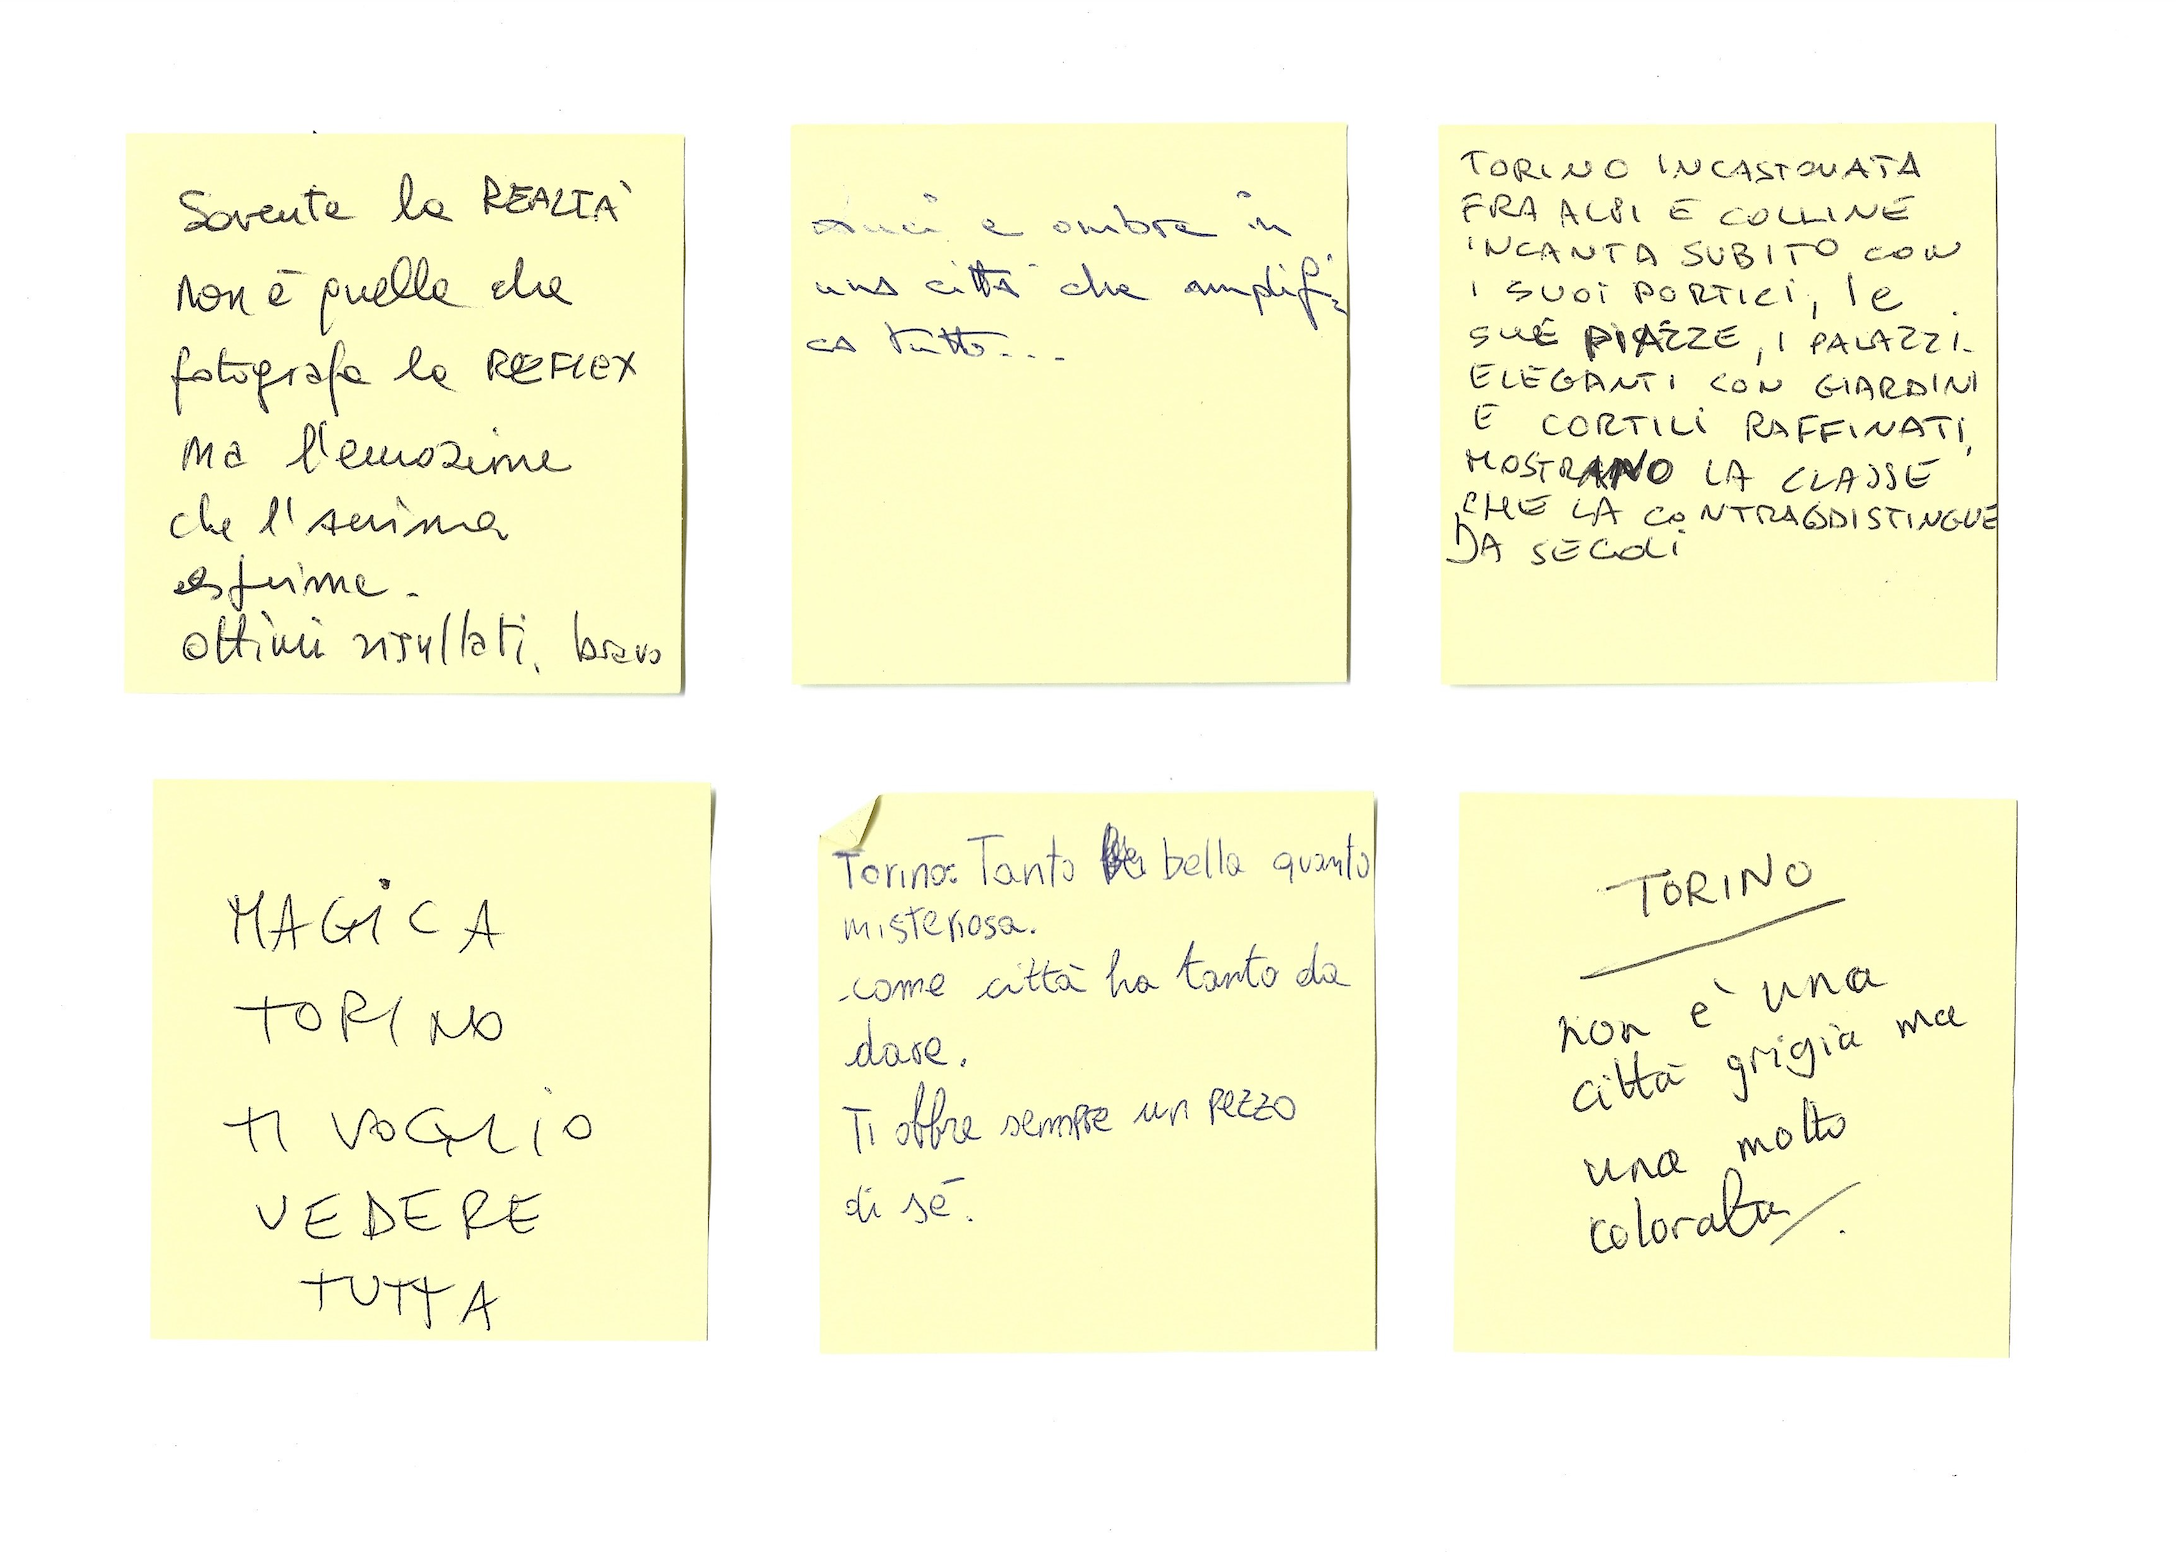 Sovente la REALTÀ
non è quella che
fotografa la REFLEX
ma l'emozione
che l'anima
esprime.
ottimi risultati, bravo
Luci e ombre in
una città che amplifi
ca tutto...
TORINO INCASTONATA
FRA ALPI E COLLINE
INCANTA SUBITO CON
I SUOI PORTICI, le
SUE PIAZZE, I PALAZZI
ELEGANTI CON GIARDINI
E CORTILI RAFFINATI,
MOSTRANO LA CLASSE
CHE LA CONTRADDISTINGUE
DA SECOLI
MAGICA
TORINO
TI VOGLIO
VEDERE
TUTTA
Torino: Tanto bella quanto
misteriosa.
come città ha tanto da
dare.
Ti offre sempre un pezzo
di sé.
TORINO
non è una
città grigia ma
una molto
colorata.